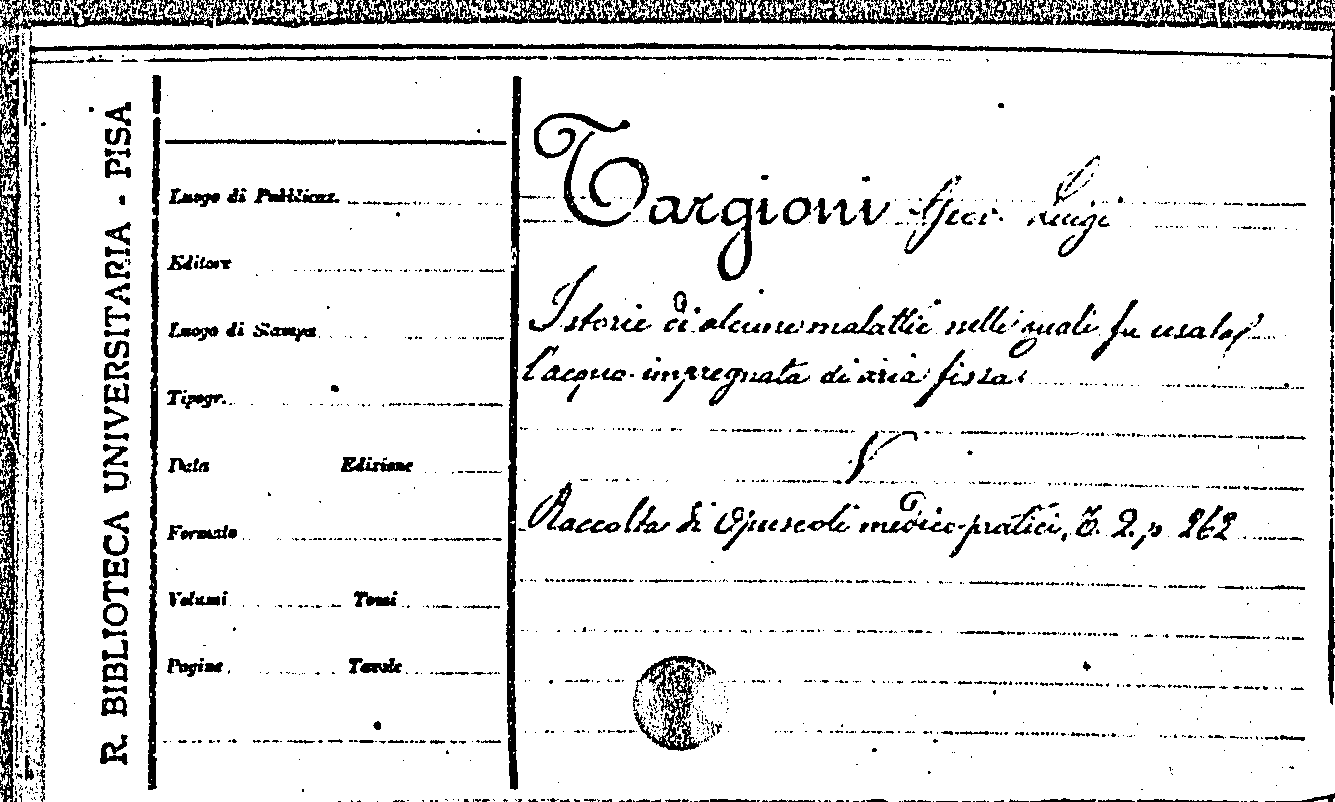 R. BIBLIOTECA UNIVERSITARIA - PISA
Luogo di Pubblicaz.
Editore
Luogo di Stampa
Tipogr.
Data Edizione
Formato
Volumi Tomi
Pagine Tavole
Targioni Luigi
Istorie di alcune malattie nelle quali fu usata
l'acqua impregnata di aria fissa.
V
Raccolta di Opuscoli medico-pratici, T. 2. p 262